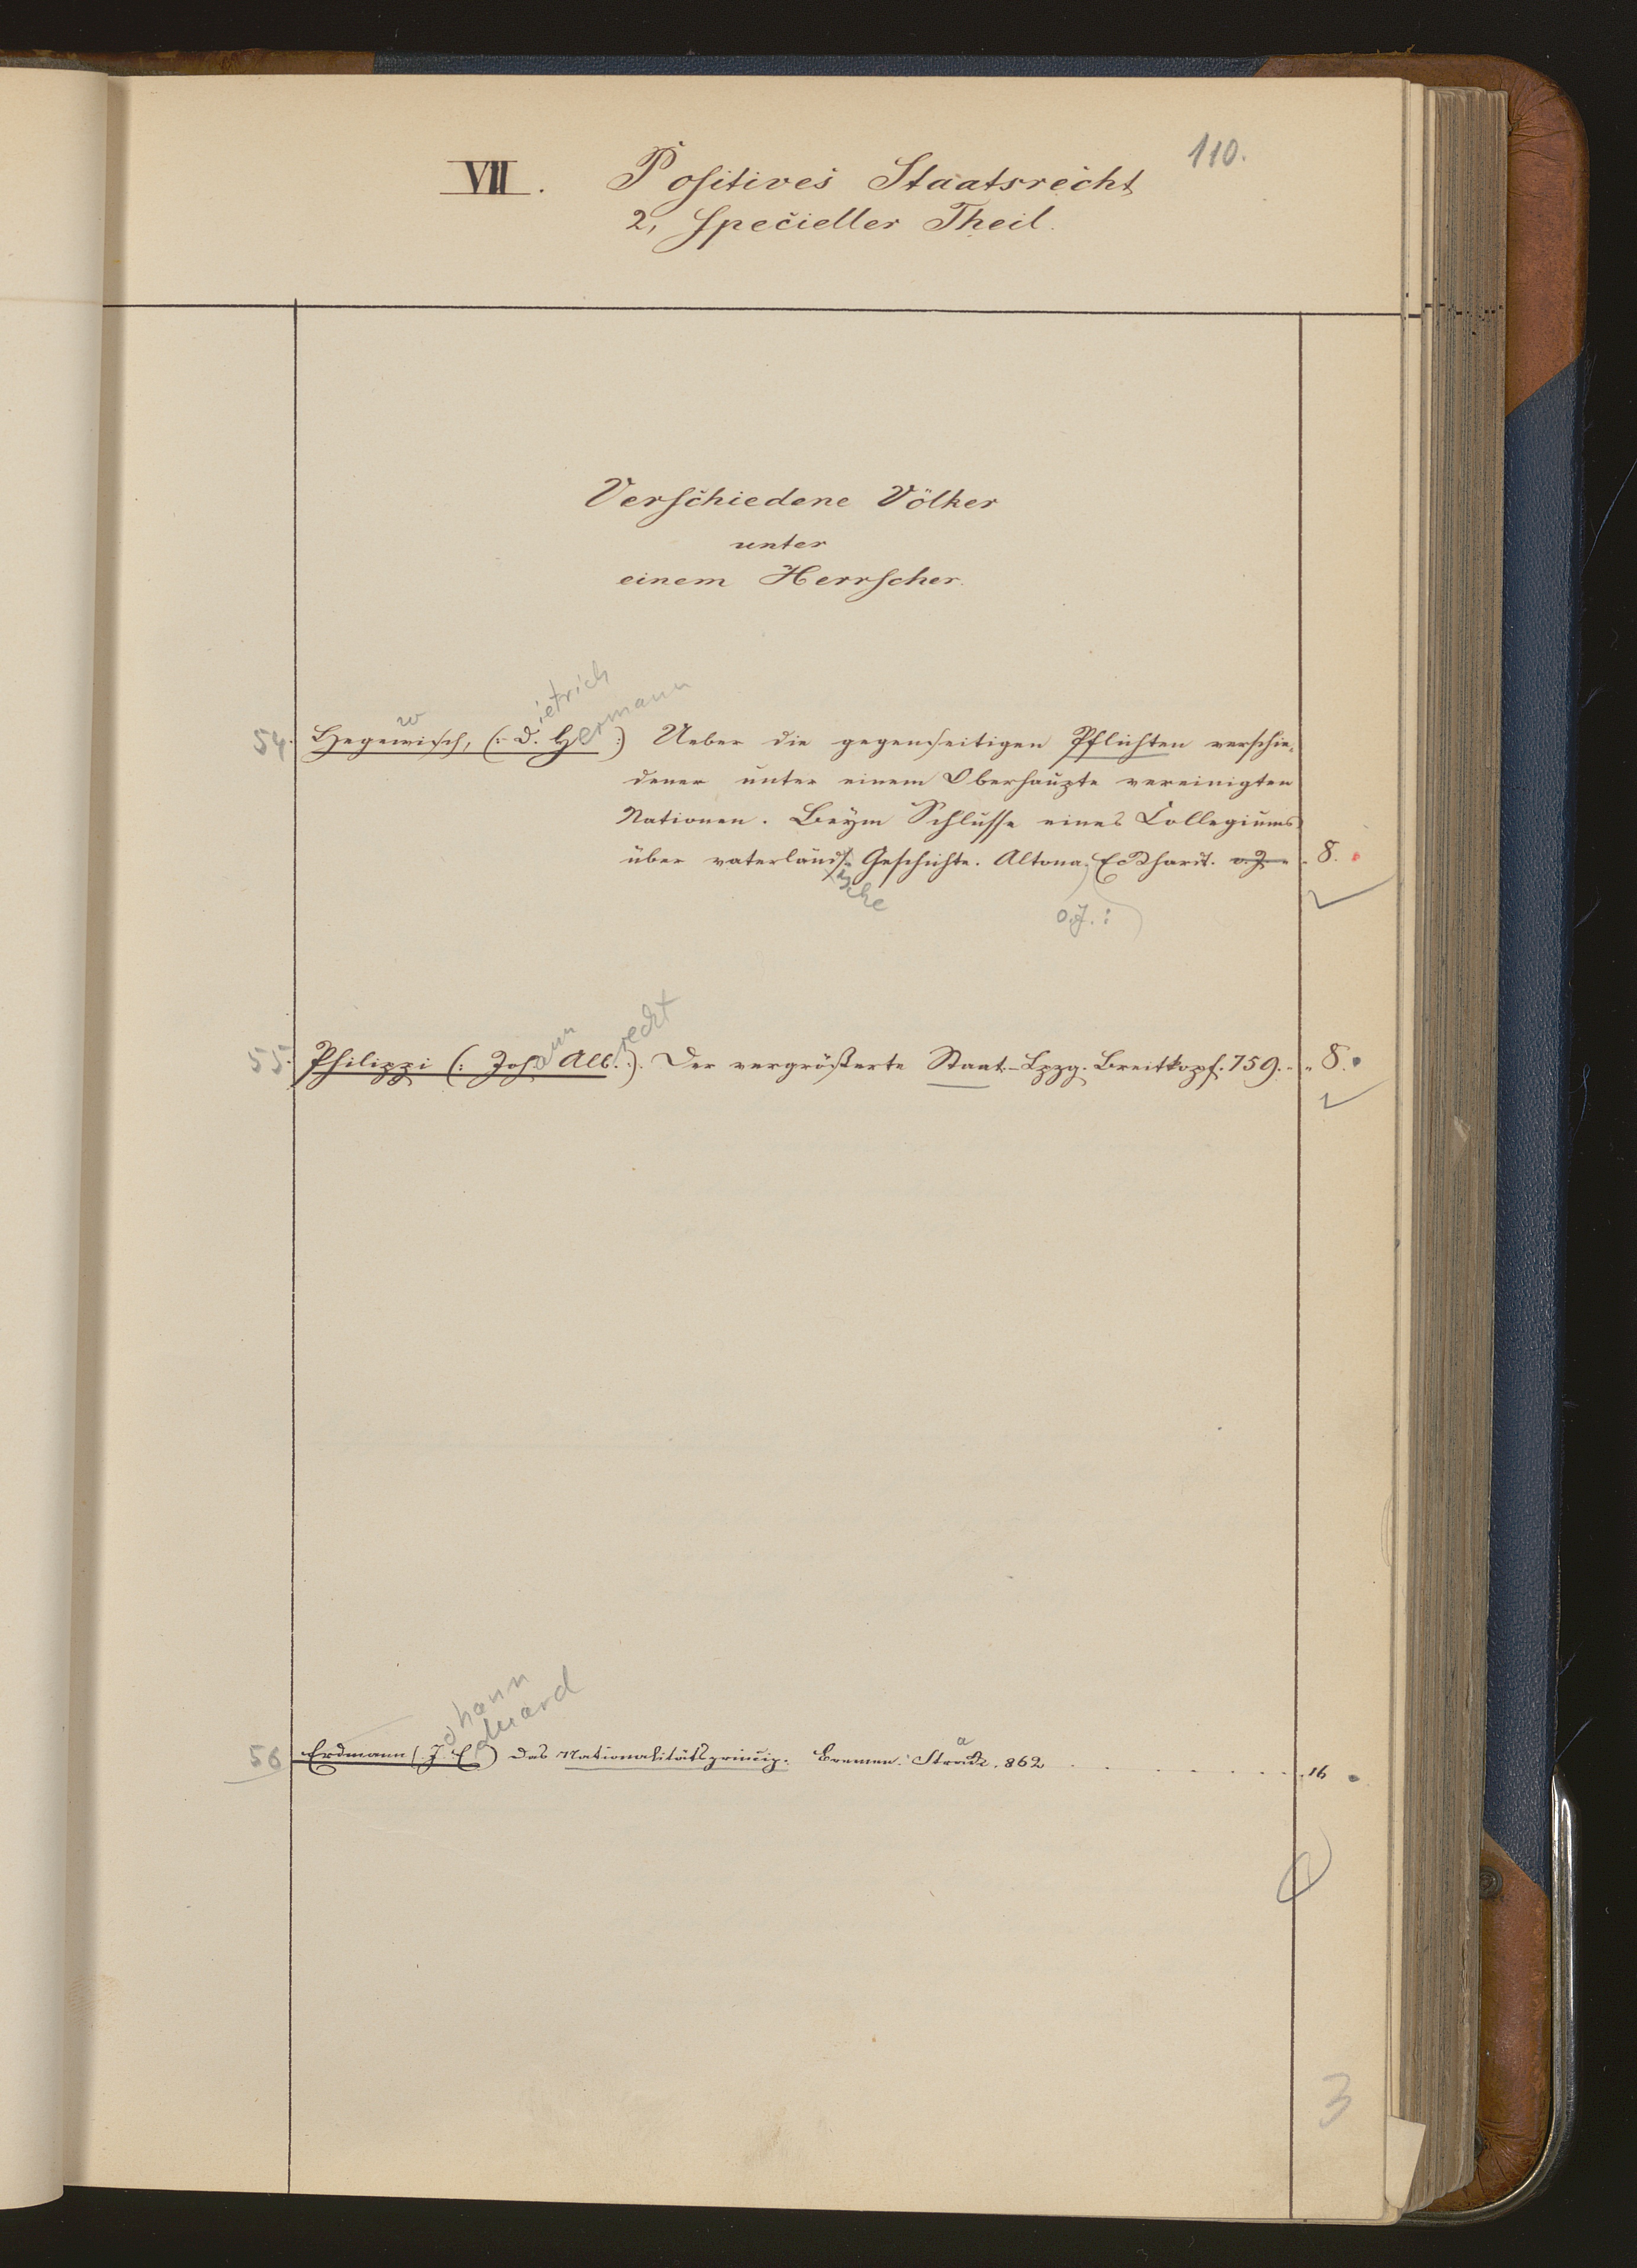 110.
VII. Positives Staatsrecht
2, Specieller Theil.
Verschiedene Völker
unter
einem Herrscher.
54. Hegewisch, (: D.ietrich Hermann :) Ueber die gegenseitigen Pflichten verschie-
dener unter einem Oberhaupte vereinigten
Nationen. Beym Schlusse eines Collegiums
über vaterländische Geschichte. Altona. Eckhardt. o. J. 8.
o.J.:
55. Philippi (: Johann Albrecht :). Der vergrößerte Staat.- Lpzg. Breitkopf. 759. " 8.
56 Erdmann (Johann Eduard) Das Nationalitätsprincip. Bremen: Strack. 862 . . . . . . . 16
3